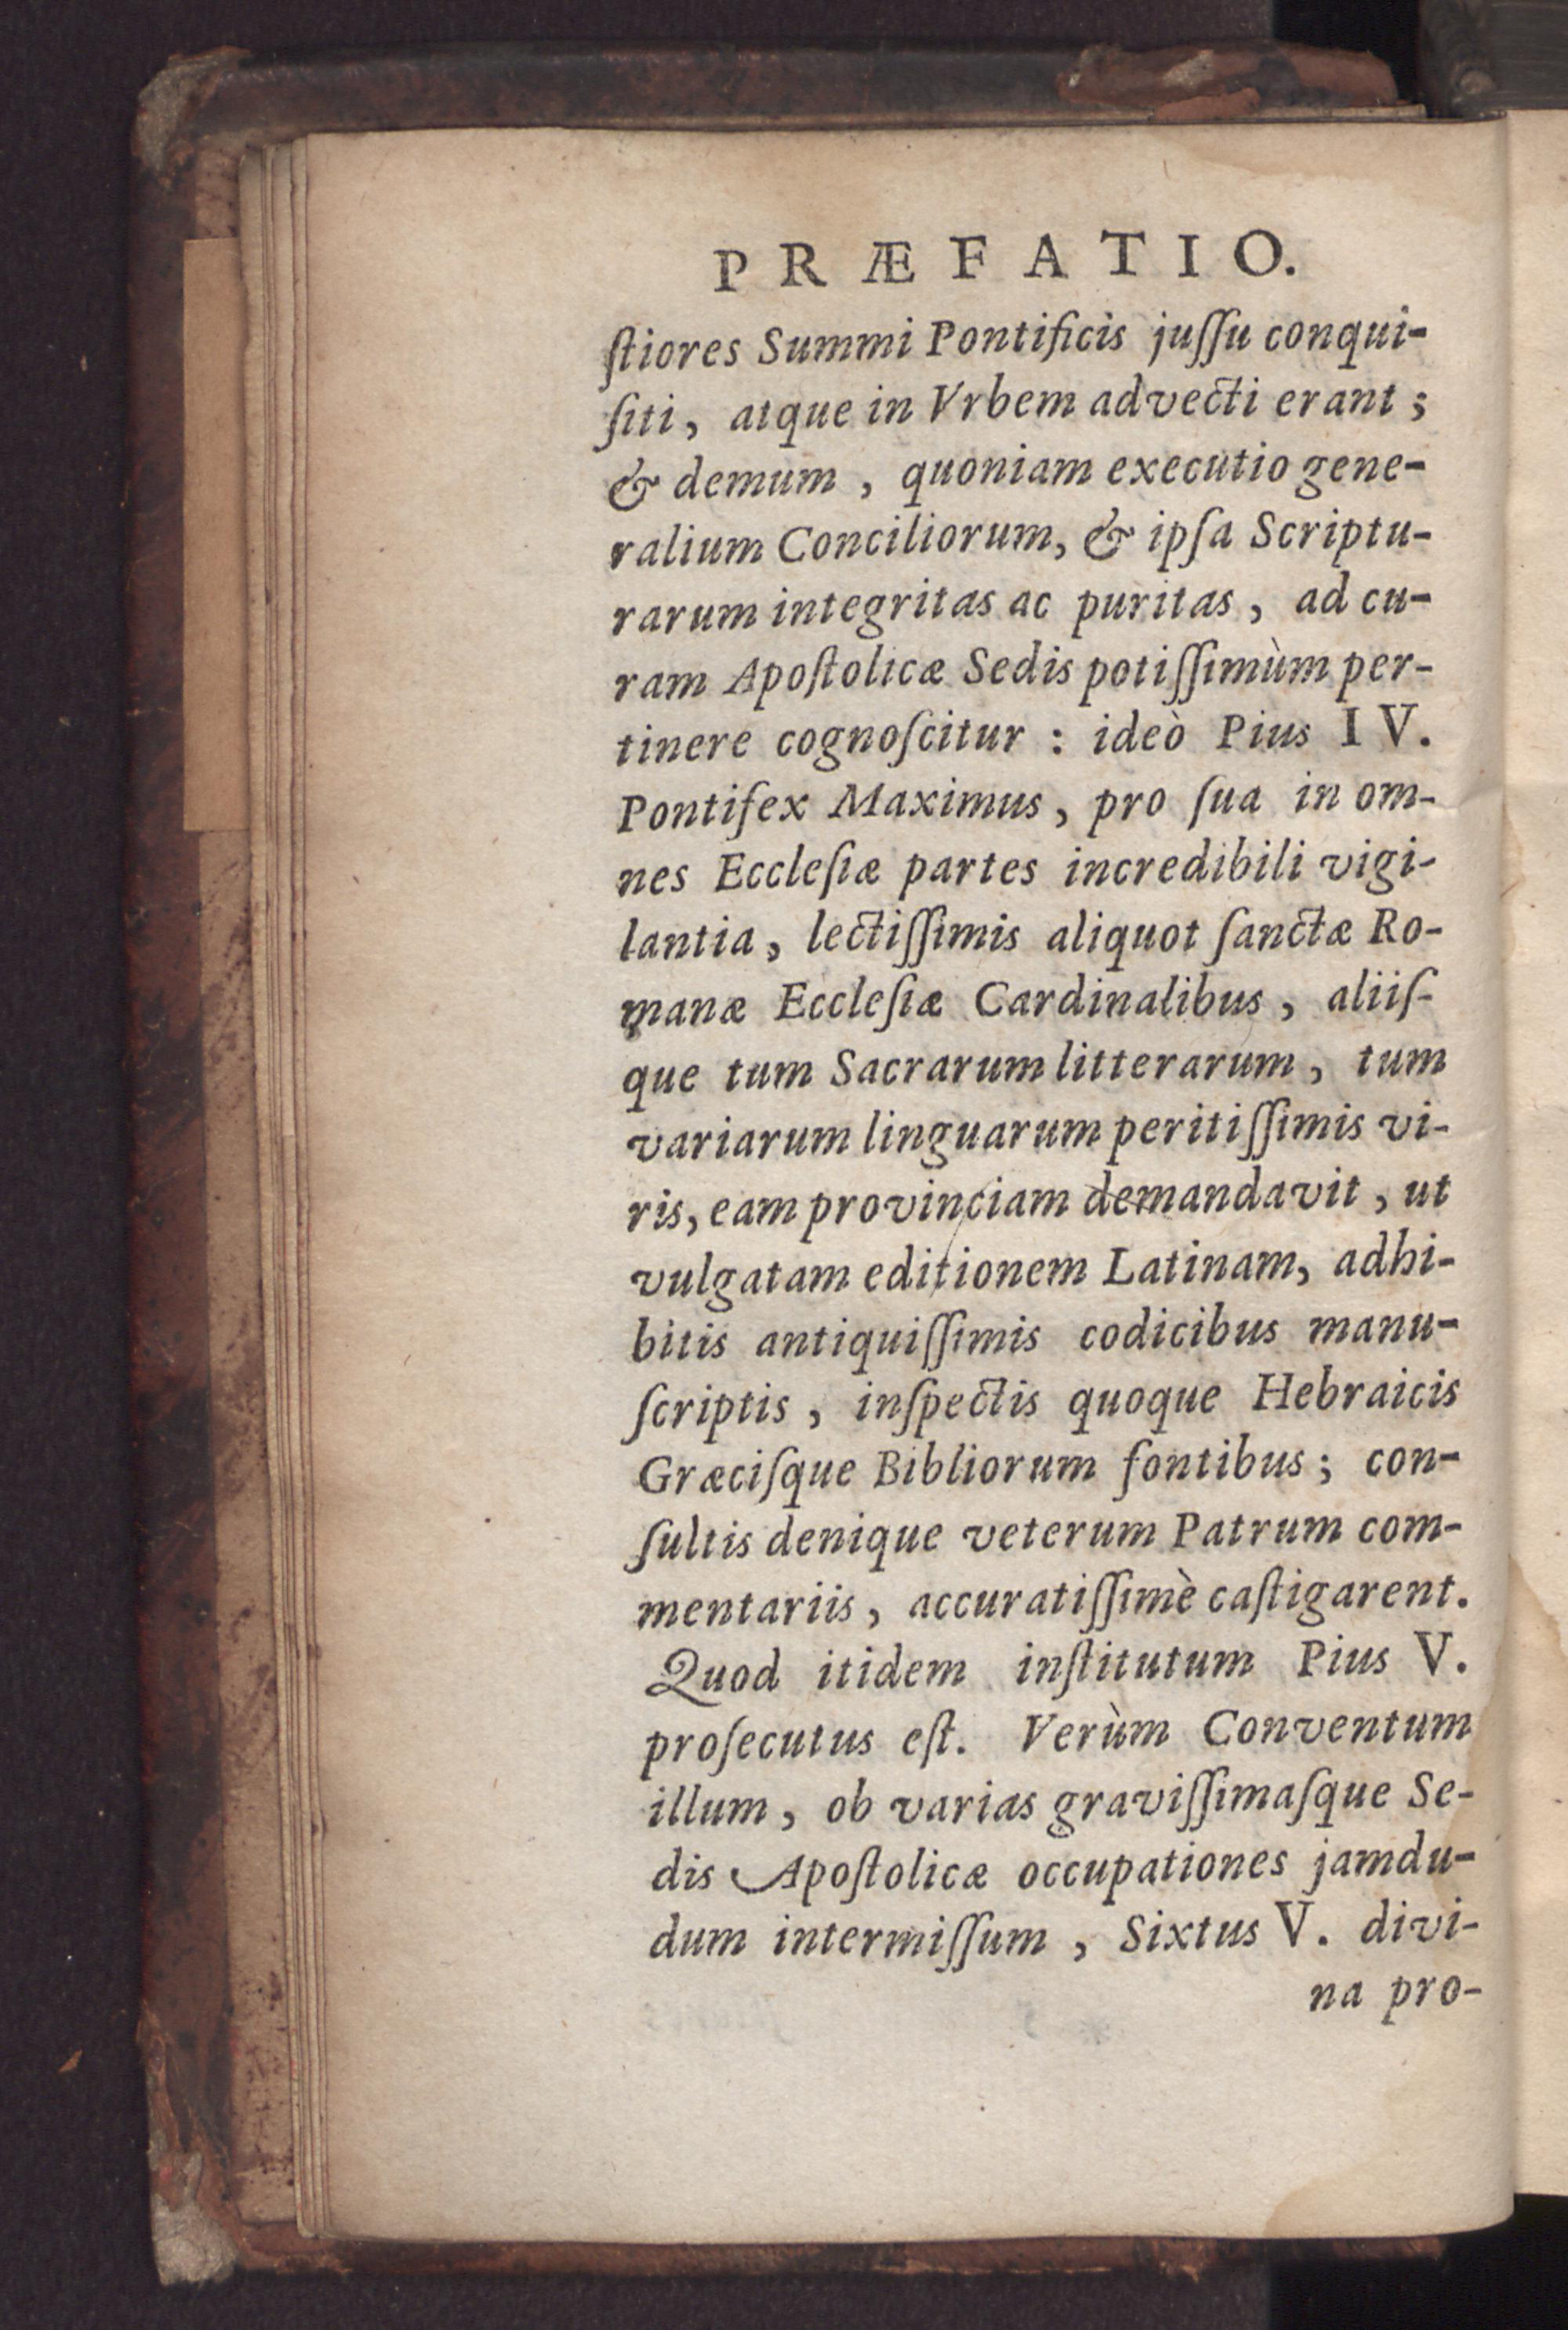 PRÆFATIO.
ſtiores Summi Pontificis juſſu conqui-
ſiti, atque in Vrbem advecti erant;
& demum, quoniam executio gene-
ralium Conciliorum, & ipſa Scriptu-
rarum integritas ac puritas, ad cu-
ram Apoſtolicæ Sedis potiſſimùm per-
tinere cognoſcitur: ideò Pius IV.
Pontifex Maximus, pro ſua in om-
nes Eccleſiæ partes incredibili vigi-
lantia, lectiſſimis aliquot ſanctæ Ro-
manæ Eccleſiæ Cardinalibus, aliiſ-
que tum Sacrarum litterarum, tum
variarum linguarum peritiſſimis vi-
ris, eam provinciam demandavit, ut
vulgatam editionem Latinam, adhi-
bitis antiquiſſimis codicibus manu-
ſcriptis, inſpectis quoque Hebraicis
Græciſque Bibliorum fontibus; con-
ſultis denique veterum Patrum com-
mentariis, accuratiſſimè caſtigarent.
Quod itidem inſtitutum Pius V.
proſecutus eſt. Verùm Conventum
illum, ob varias graviſſimaſque Se-
dis Apoſtolicæ occupationes jamdu-
dum intermiſſum, Sixtus V. divi-
na pro-